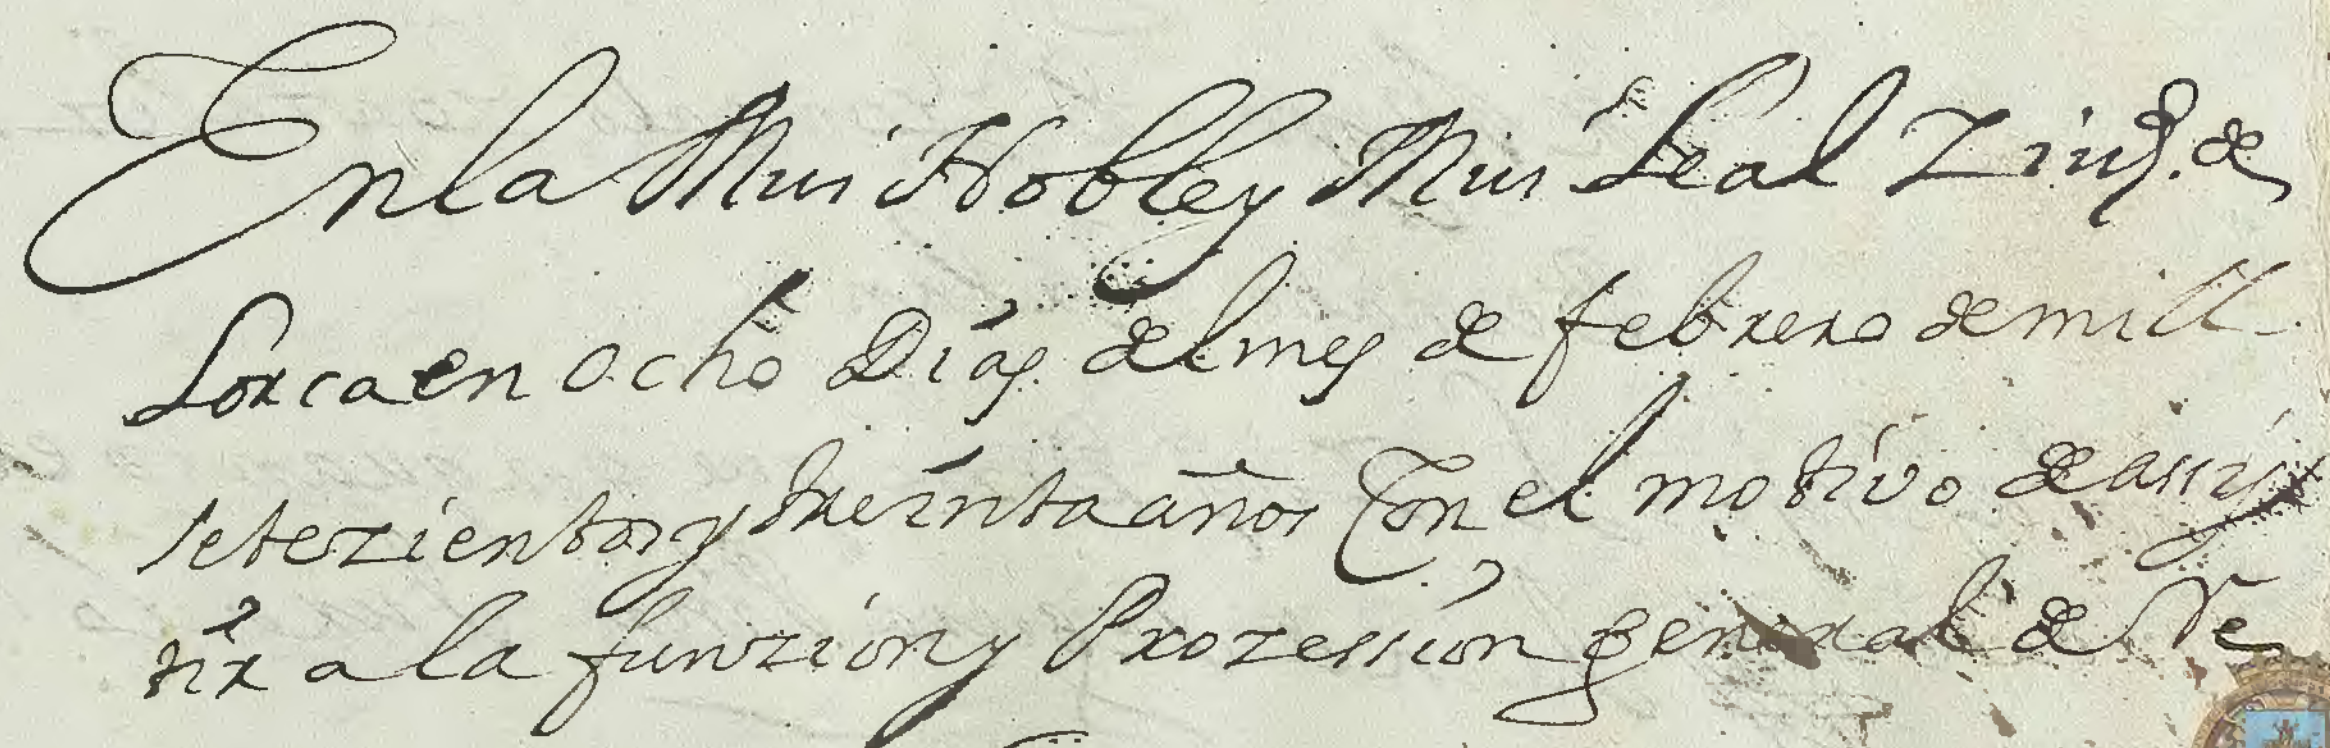 En la Mui Noble y Mui Leal Ziud. de
Lorca en ocho Dias del mes de febrero de mill
setezientos y treinta años Con el motivo de assis
tir a la funzion y Prozession general de Re